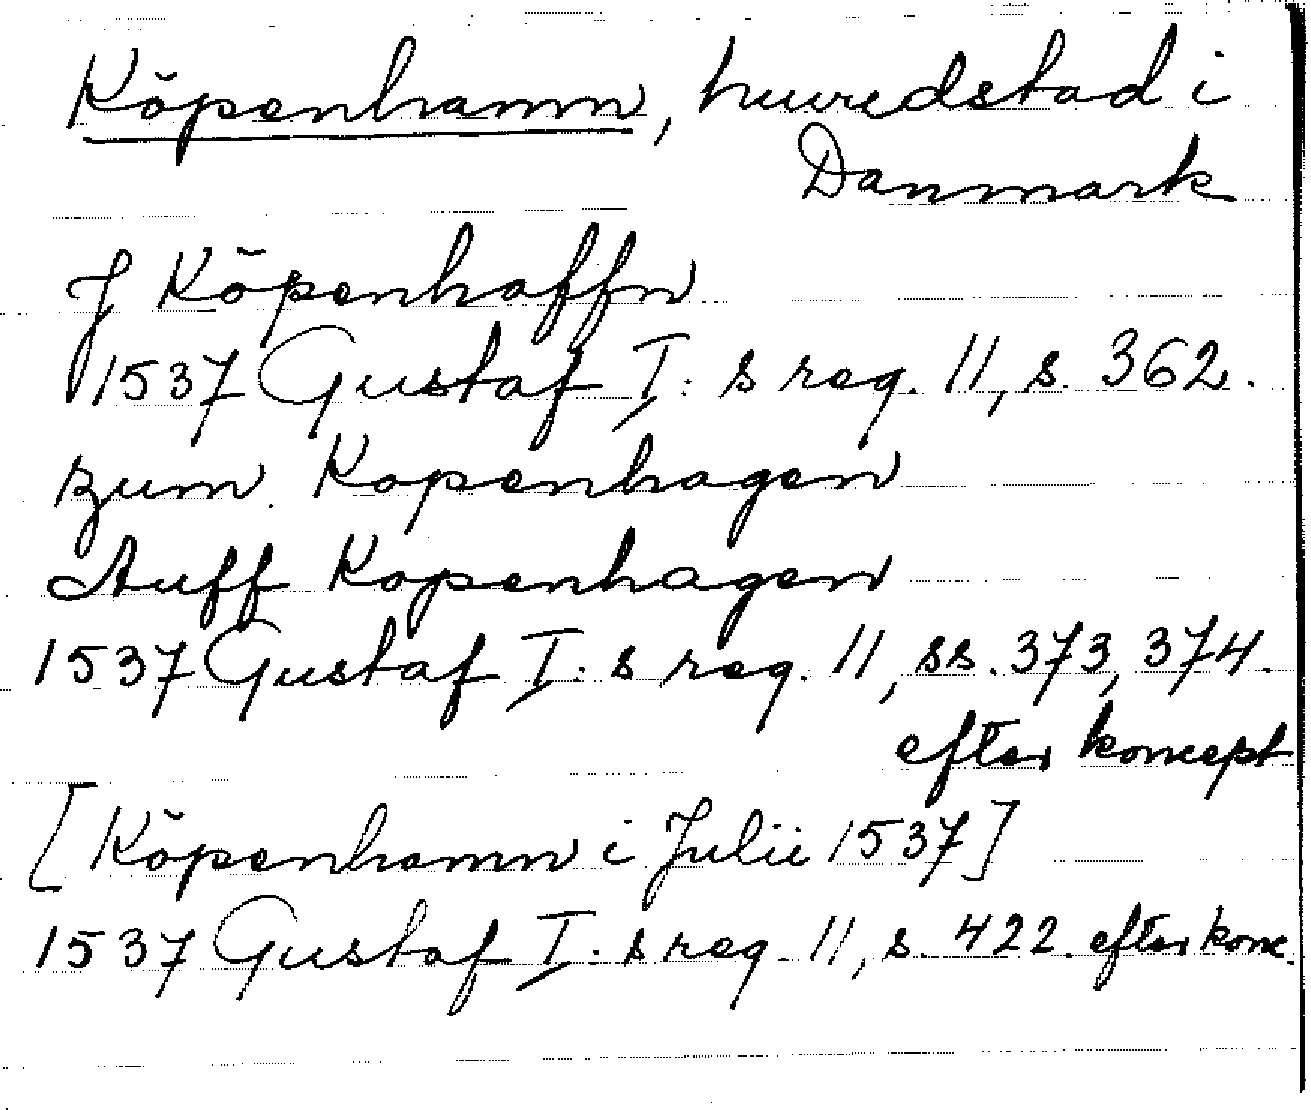 Köpenhamn, huvudstad i
Danmark
J Köpenhaffn
1537 Gustaf I:s reg. 11, s. 362.
zum Kopenhagen
Auff Kopenhagen
1537 Gustaf I:s reg. 11, ss. 373, 374.
efter koncept
[Köpenhamn i Julii 1537]
1537 Gustaf I:s reg. 11, s. 422. efter konc.